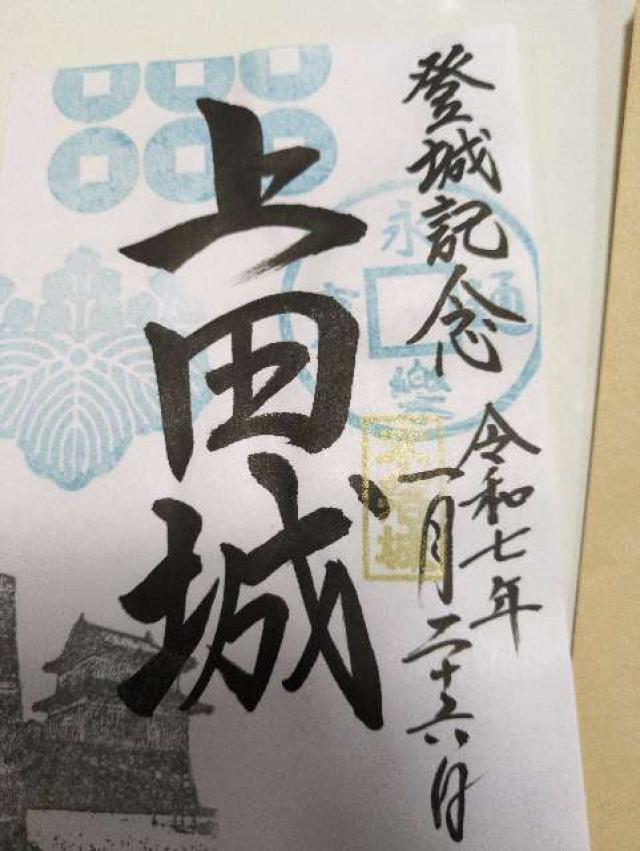 登城記念
令和七年
一月二十六日
上田城
永
通